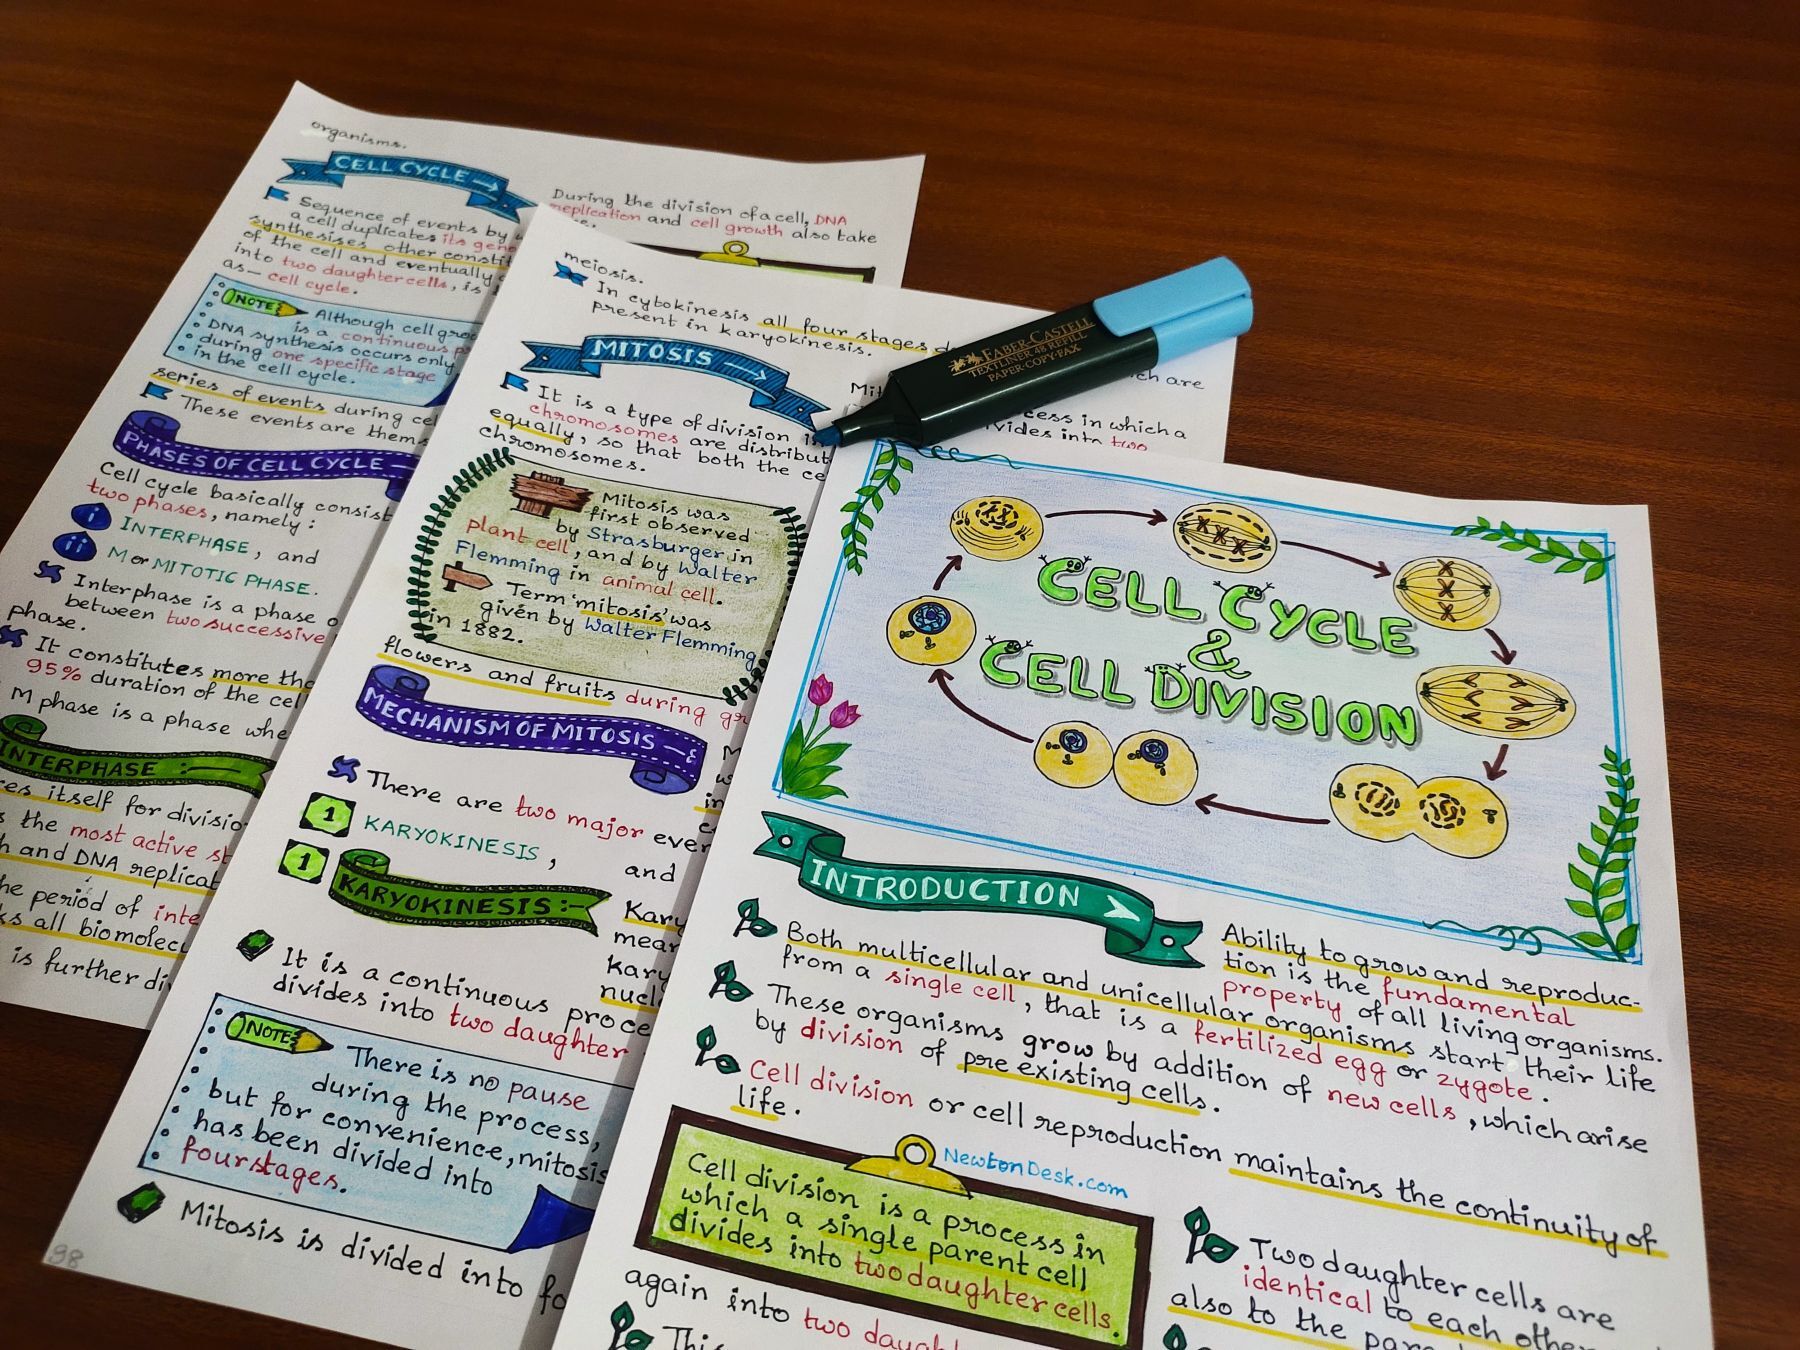 organisms.
CELL CYCLE →
Sequence of events by
a cell duplicates its gen
synthesises other constit
of the cell and eventually
into two daughter cells, is
as— cell cycle.
During the division of a cell, DNA
replication and cell growth also take
NOTE
Although cell gro
is a continuous p
DNA synthesis occurs only
during one specific stage
in the cell cycle.
series of events during ce
These events are them
PHASES OF CELL CYCLE —
Cell cycle basically consist
two phases, namely :
i INTERPHASE, and
ii M or MITOTIC PHASE.
Interphase is a phase o
between two successive
phase.
It constitutes more tha
95% duration of the cel
M phase is a phase whe
INTERPHASE :-
res itself for divisio
s the most active st
h and DNA replicat
he period of inte
ks all biomolecu
is further div
meiosis.
In cytokinesis all four stages d
present in karyokinesis.
MITOSIS →
It is a type of division i
chromosomes are distribut
equally, so that both the ce
chromosomes.
Mit
ich are
cess in which a
ivides into two
Mitosis was
first observed
by Strasburger in
plant cell, and by Walter
Flemming in animal cell.
Term 'mitosis' was
given by Walter Flemming
in 1882.
flowers and fruits during gr
MECHANISM OF MITOSIS —
There are two major even
1 KARYOKINESIS, and
1 KARYOKINESIS :-
Kary
mean
kary
nucl
It is a continuous proce
divides into two daughter
NOTE
There is no pause
during the process,
but for convenience, mitosis
has been divided into
four stages.
Mitosis is divided into fo
98
FABER-CASTELL
TEXTLINER 48 REFILL
PAPER-COPY-FAX
CELL CYCLE
&
CELL DIVISION
INTRODUCTION
Ability to grow and reproduc-
tion is the fundamental
property of all living organisms.
Both multicellular and unicellular organisms start their life
from a single cell, that is a fertilized egg or zygote.
These organisms grow by addition of new cells, which arise
by division of pre existing cells.
Cell division or cell reproduction maintains the continuity of
life.
NewtonDesk.com
Cell division is a process in
which a single parent cell
divides into two daughter cells.
Two daughter cells are
identical to each other
also to the pare
again into two daugh
This